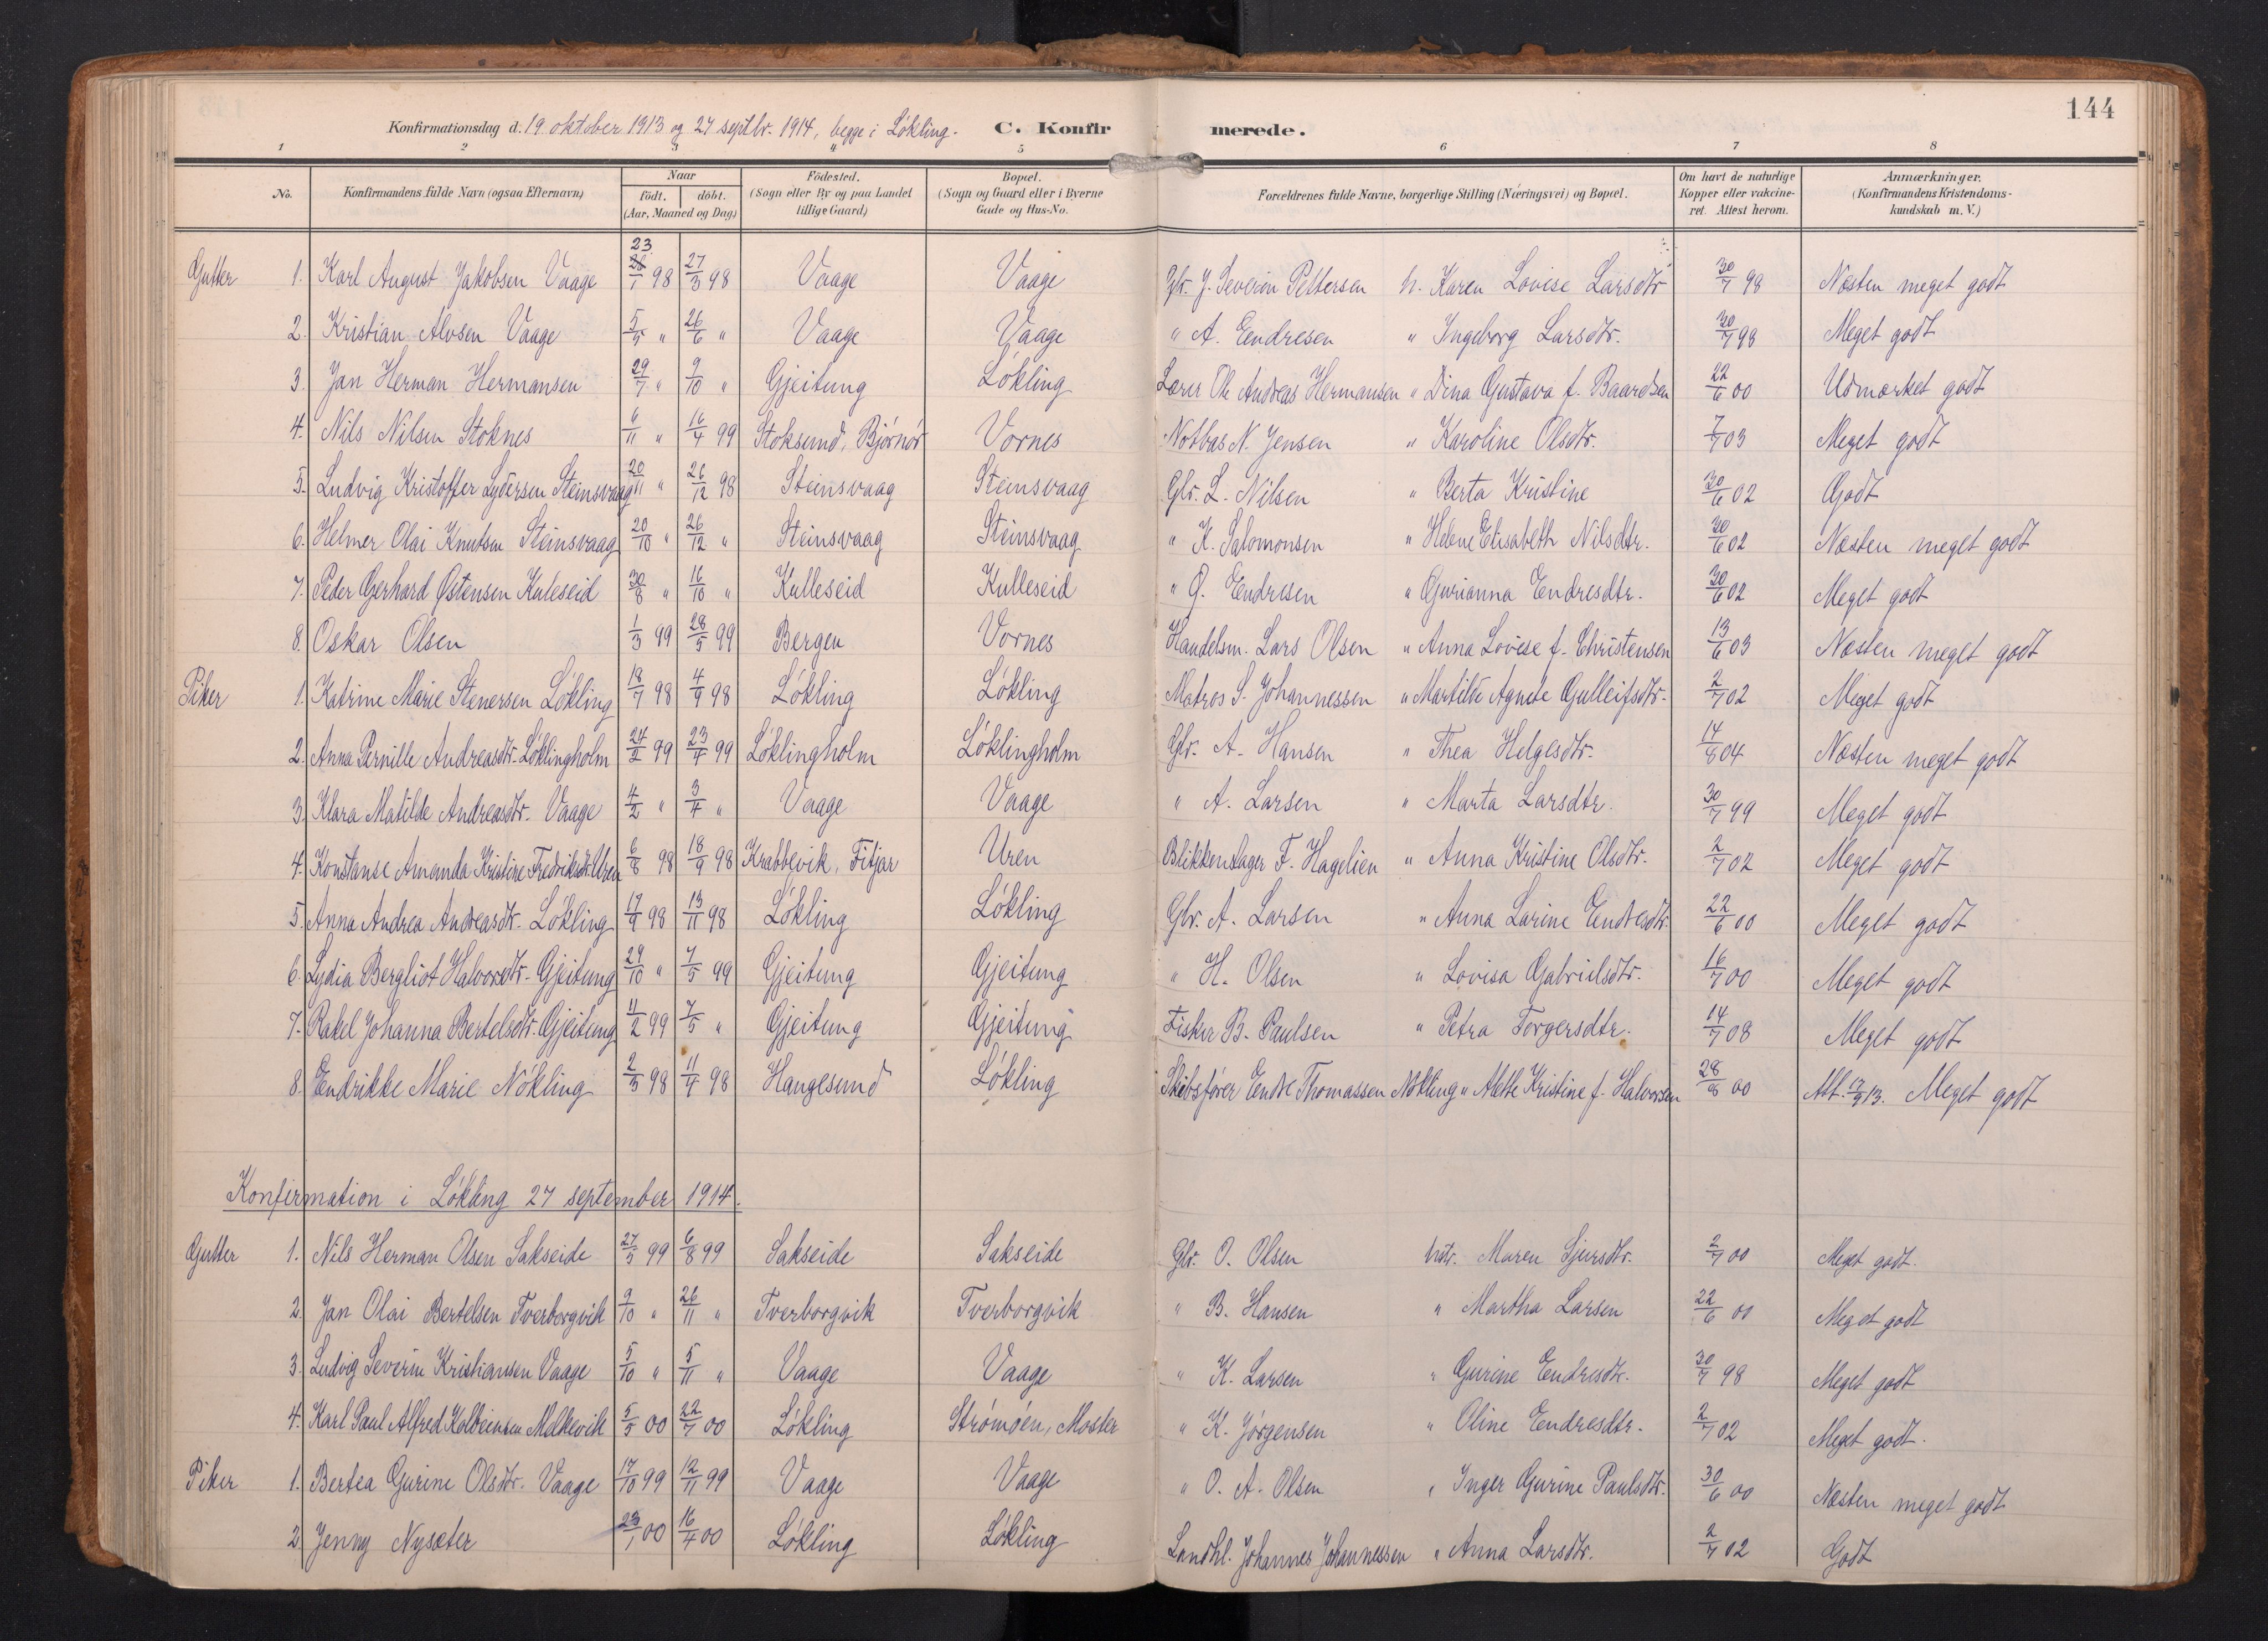 144
Konfirmationsdag d. 19 oktober 1913 og 27 septbr. 1914, begge i Løkling. C. Konfirmerede.
1 2 3 4 5 6 7 8
No. Konfirmandens fulde Navn (ogsaa Efternavn) Naar født. døbt. (Aar, Maaned og Dag) Fødested. (Sogn eller By og paa Landet tillige Gaard) Bopæl. (Sogn og Gaard eller i Byerne Gade og Hus-No. Forældrenes fulde Navne, borgerlige Stilling (Næringsvei) og Bopæl. Om havt de naturlige Kopper eller vakcineret. Attest herom. Anmærkninger. (Konfirmandens Kristendomskundskab m. V.)
Gutter 1. Karl August Jakobsen Vaage 23/1 98 27/3 98 Vaage Vaage Gbr. J. Severin Pettersen h. Karen Lovise Larsdtr 30/7 98 Næsten meget godt
2. Kristian Alvsen Vaage 5/5 " 26/6 " Vaage Vaage " A. Endresen " Ingeborg Larsdtr. 30/7 98 Meget godt
3. Jan Herman Hermansen 29/7 " 9/10 " Gjeitung Løkling Lærer Ole Andreas Hermansen " Dina Gustava f. Baardsen 22/6 00 Udmærket godt
4. Nils Nilsen Stoknes 6/11 " 16/4 99 Stoksund, Bjørnør Vornes Notbas N. Jensen " Karoline Olsdtr. 7/7 03 Meget godt
5. Ludvig Kristoffer Lydersen Steinsvaag 20/11 " 26/12 98 Steinsvaag Steinsvaag Gbr. L. Nilsen " Berta Kristine 30/6 02 Godt
6. Helmer Olai Knutsen Steinsvaag 20/10 " 26/12 " Steinsvaag Steinsvaag " K. Salomonsen " Helene Elisabeth Nilsdtr. 30/6 02 Næsten meget godt
7. Peder Gerhard Østensen Kuleseid 30/8 " 16/10 " Kulleseid Kulleseid " Ø. Endresen " Gurianna Endresdtr. 30/6 02 Meget godt
8. Oskar Olsen 1/3 99 28/5 99 Bergen Vornes Handelsm. Lars Olsen " Anna Lovise f. Christensen 13/6 03 Næsten meget godt
Piker 1. Katrine Marie Stenersen Løkling 18/7 98 4/9 98 Løkling Løkling Matros S. Johannessen " Martilte Agnete Gulleifsdtr. 2/7 02 Meget godt
2. Anna Pernille Andreasdtr. Løklingholm 24/2 99 23/4 99 Løklingholm Løklingholm Gbr. A. Hansen " Thea Helgesdtr. 14/8 04 Næsten meget godt
3. Klara Matilde Andreasdtr. Vaage 4/2 " 3/4 " Vaage Vaage " A. Larsen " Marta Larsdtr. 30/7 99 Meget godt
4. Konstanse Amanda Kristine Fredriksdtr. Uren 6/8 98 18/9 98 Krabbevik, Fitjar Uren Blikkenslager F. Hagelien " Anna Kristine Olsdtr. 2/7 02 Meget godt
5. Anna Andrea Andreasdtr. Løkling 17/9 98 13/11 98 Løkling Løkling Gbr. A. Larsen " Anna Larine Endresdtr. 22/6 00 Meget godt
6 Lydia Bergliot Halvorsdtr. Gjeitung 29/10 " 7/5 99 Gjeitung Gjeitung " H. Olsen " Lovisa Gabrielsdtr. 16/7 00 Meget godt
7. Rakel Johanna Bertelsdtr. Gjeitung 11/2 99 7/5 " Gjeitung Gjeitung Fisker B. Paulsen " Petra Torgersdtr. 14/7 08 Meget godt
8. Endrikke Marie Nökling 2/3 98 11/4 98 Haugesund Løkling Skibsfører Endre Thomassen Nökling " Alette Kristine f. Halvorsen 28/8 00 Att. 17/9 13. Meget godt
Konfirmation i Løkling 27 september 1914.
Gutter 1. Nils Herman Olsen Sakseide 27/5 99 6/8 99 Sakseide Sakseide Gbr. O. Olsen hstr. Maren Sjursdtr. 2/7 00 Meget godt.
2. Jan Olai Bertelsen Tverborgvik 9/10 " 26/11 " Tverborgvik Tverborgvik " B. Hansen " Martha Larsen 22/6 00 Meget godt
3. Ludvig Severin Kristiansen Vaage 5/10 " 5/11 " Vaage Vaage " K. Larsen " Gurine Endresdtr. 30/7 98 Meget godt
4. Karl Paul Alfred Kolbeinsen Melkevik 5/5 00 22/7 00 Løkling Strømøen, Moster " K. Jørgensen " Oline Endresdtr. 2/7 02 Meget godt.
Piker 1. Bertea Gurine Olsdtr. Vaage 17/10 99 12/11 99 Vaage Vaage " O. A. Olsen " Inger Gurine Paulsdtr. 30/6 00 Næsten meget godt
2. Jenny Nysæter 23/1 00 16/4 00 Løkling Løkling Landhl. Johannes Johannessen " Anna Larsdtr. 2/7 02 Godt